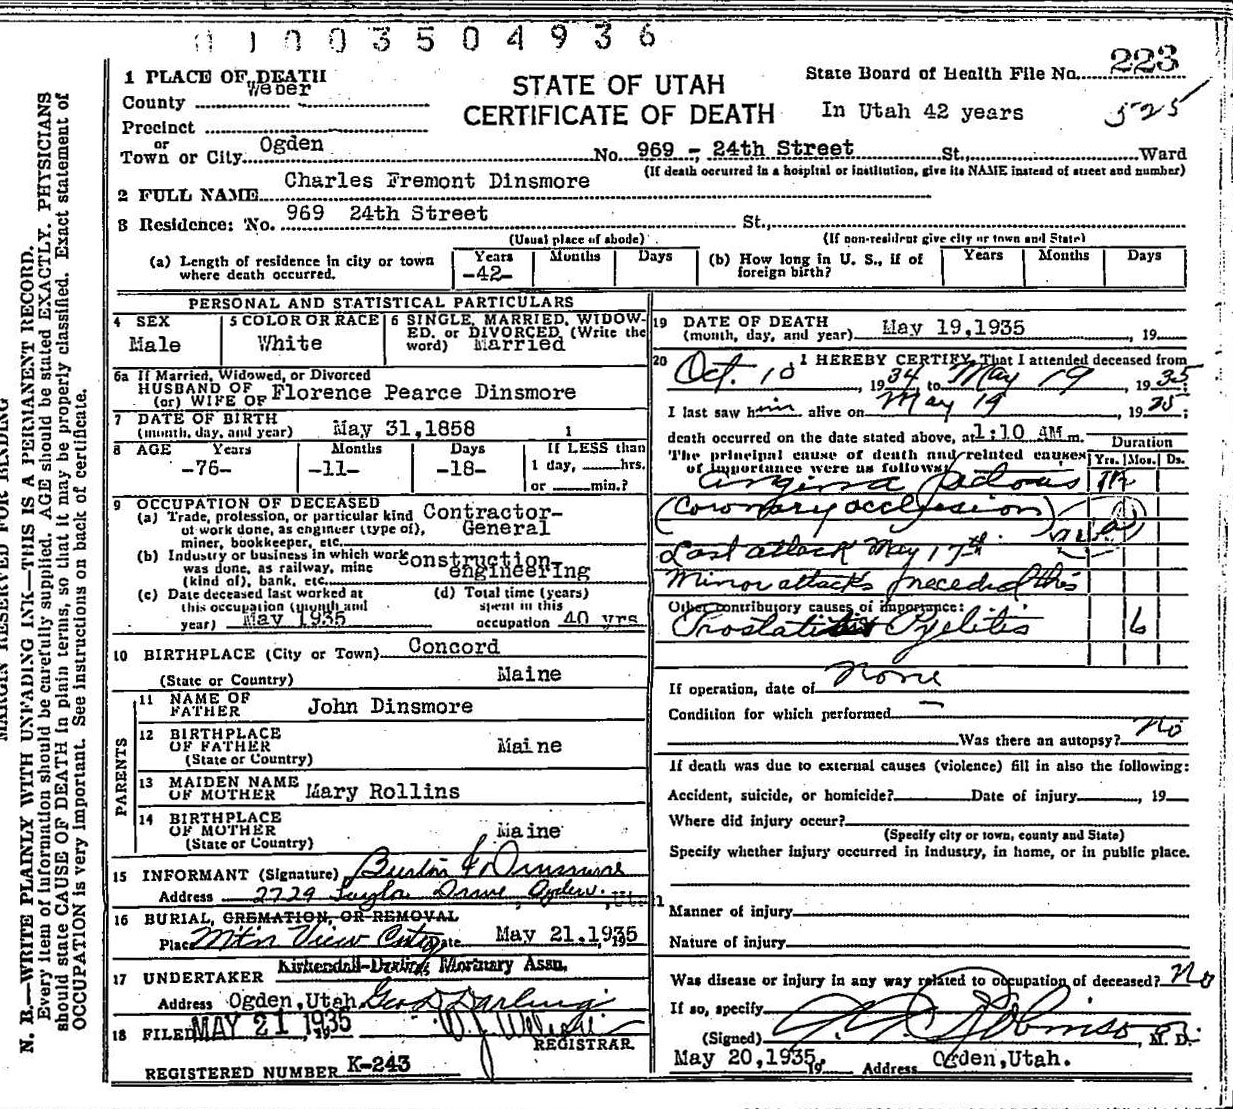 0 1 0 0 3 5 0 4 9 3 6
MARGIN RESERVED FOR BINDING
N. B.—WRITE PLAINLY WITH UNFADING INK—THIS IS A PERMANENT RECORD.
Every item of information should be carefully supplied. AGE should be stated EXACTLY. PHYSICIANS
should state CAUSE OF DEATH in plain terms, so that it may be properly classified. Exact statement of
OCCUPATION is very important. See instructions on back of certificate.
STATE OF UTAH
CERTIFICATE OF DEATH
State Board of Health File No. 223
In Utah 42 years
525
1 PLACE OF DEATH
County Weber
Precinct
or
Town or City Ogden No. 969 - 24th Street St., Ward
(If death occurred in a hospital or institution, give its NAME instead of street and number)
2 FULL NAME Charles Fremont Dinsmore
3 Residence: No. 969 24th Street St.,
(Usual place of abode) (If non-resident give city or town and State)
(a) Length of residence in city or town where death occurred. Years -42- Months Days
(b) How long in U. S., if of foreign birth? Years Months Days
PERSONAL AND STATISTICAL PARTICULARS
4 SEX Male
5 COLOR OR RACE White
6 SINGLE, MARRIED, WIDOWED, or DIVORCED (Write the word) Married
6a If Married, Widowed, or Divorced
HUSBAND OF
(or) WIFE OF Florence Pearce Dinsmore
7 DATE OF BIRTH
(month, day, and year) May 31,1858 1
8 AGE Years -76- Months -11- Days -18- If LESS than 1 day, hrs. or min.?
9 OCCUPATION OF DECEASED
(a) Trade, profession, or particular kind of work done, as engineer (type of), miner, bookkeeper, etc. Contractor- General
(b) Industry or business in which work was done, as railway, mine (kind of), bank, etc. Construction engineering
(c) Date deceased last worked at this occupation (month and year) May 1935
(d) Total time (years) spent in this occupation 40 yrs
10 BIRTHPLACE (City or Town) Concord
(State or Country) Maine
PARENTS
11 NAME OF FATHER John Dinsmore
12 BIRTHPLACE OF FATHER (State or Country) Maine
13 MAIDEN NAME OF MOTHER Mary Rollins
14 BIRTHPLACE OF MOTHER (State or Country) Maine
15 INFORMANT (Signature) Dinsmore
Address 2729 Taylor , Ogden, Utah
16 BURIAL, CREMATION, OR REMOVAL
Place Mtn View Date May 21.1935
17 UNDERTAKER Kirkendall-Darling Mortuary Assn.
Address Ogden,Utah Geo D Darling
18 FILED MAY 21 1935
REGISTRAR
REGISTERED NUMBER K-243
19 DATE OF DEATH
(month, day, and year) May 19,1935 19
20 I HEREBY CERTIFY, That I attended deceased from
Oct. 10, 1934 to May 19, 1935;
I last saw him alive on May 19, 1935;
death occurred on the date stated above, at 1:10 AM m.
The principal cause of death and related causes of importance were as follows: Duration Yrs. Mos. Ds.
Angina Pectoris
(Coronary occlusion)
Last attack May 17th
Minor attacks preceded this
Other contributory causes of importance:
Prostatitis Pyelitis 6
If operation, date of None
Condition for which performed —
Was there an autopsy? No
If death was due to external causes (violence) fill in also the following:
Accident, suicide, or homicide? Date of injury , 19
Where did injury occur?
(Specify city or town, county and State)
Specify whether injury occurred in industry, in home, or in public place.
Manner of injury
Nature of injury
Was disease or injury in any way related to occupation of deceased? No
If so, specify
(Signed) , M. D.
May 20,1935. 19 Address Ogden,Utah.